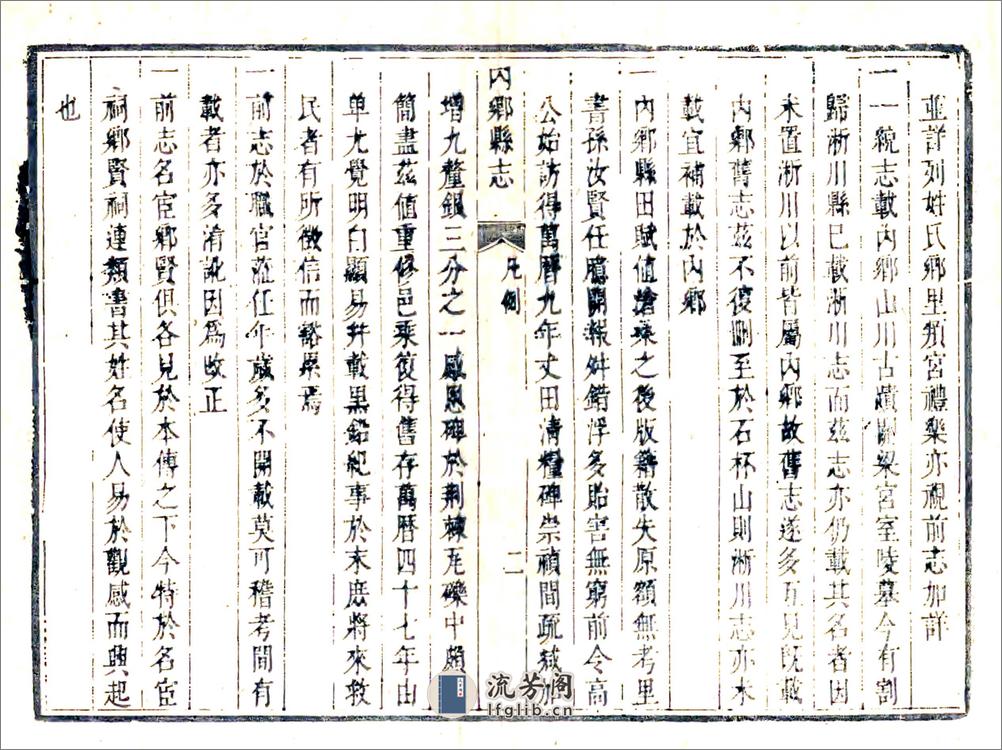 並詳列姓氏鄉里頖宮禮樂亦視前志加詳
一一統志載內鄉山川古蹟關梁宮室陵墓今有割
歸淅川縣已載淅川志而茲志亦仍載其名者因
未置淅川以前皆屬內鄉故舊志遂多互見既載
內鄉舊志茲不復刪至於石杯山則淅川志亦未
載宜補載於內鄉
一內鄉縣田賦值滄桑之後版籍散失原額無考里
書孫汝賢任臆開報舛錯浮多貽害無窮前令高
公始訪得萬曆九年丈田清糧碑崇禎間疏減加
內鄉縣志 凡例 二
增九釐銀三分之一感恩碑於荆棘瓦礫中頗
簡盡茲值重修邑乘復得舊存萬曆四十七年由
单尤覺明白顯易并載黑鉛紀事於末庶將來救
民者有所徵信而豁累焉
一前志於職官蒞任年歲多不開載莫可稽考間有
載者亦多淆訛因爲改正
一前志名宦鄉賢俱各見於本傳之下今特於名宦
祠鄉賢祠連類書其姓名使人易於觀感而興起
也
流芳阁
lfglib.cn